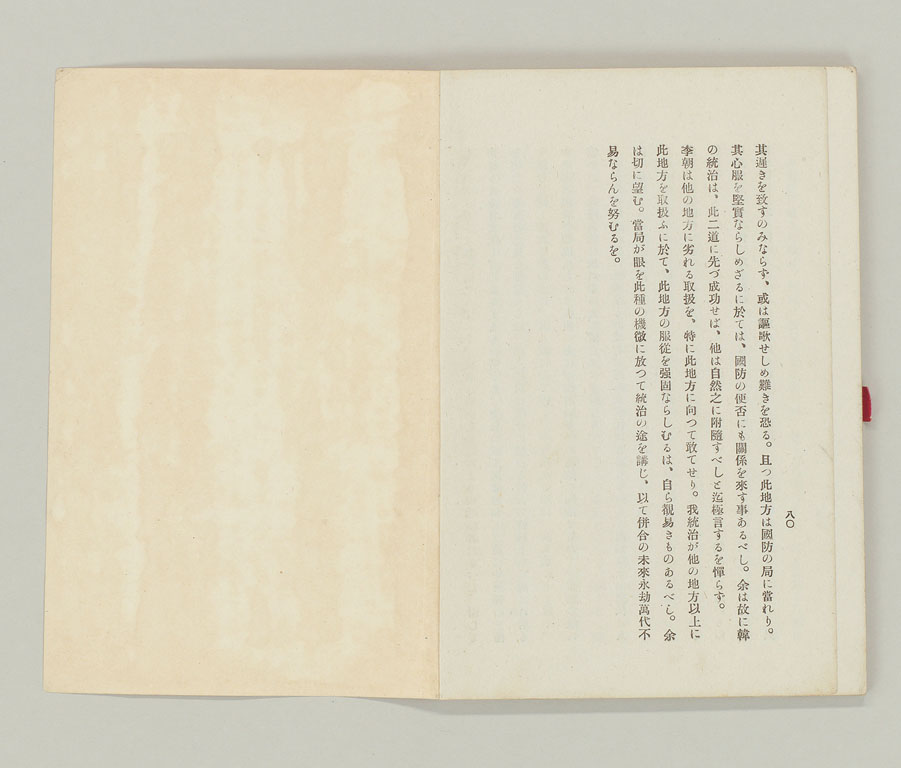 八〇
其遲きを致すのみならず、或は謳歌せしめ難きを恐る。且つ此地方は國防の局に當れり。
其心服を堅實ならしめざるに於ては、國防の便否にも關係を來す事あるべし。余は故に韓
の統治は、此二道に先づ成功せば、他は自然之に附隨すべしと迄極言するを憚らず。
李朝は他の地方に劣れる取扱を、特に此地方に向つて敢てせり。我統治が他の地方以上に
此地方を取扱ふに於て、此地方の服從を强固ならしむるは、自ら覩易きものあるべし。余
は切に望む。當局が眼を此種の機微に放つて統治の途を講じ、以て併合の未來永劫萬代不
易ならんを努むるを。